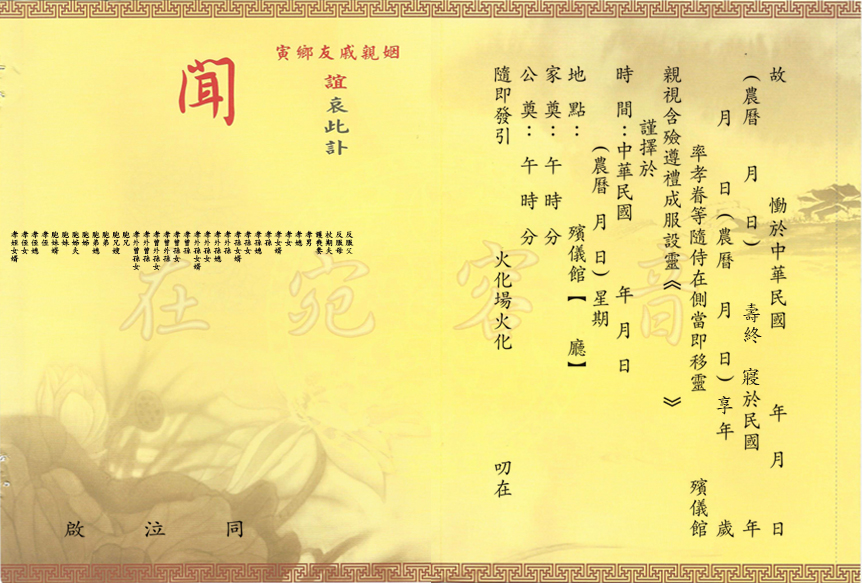 故 慟於中華民國 年 月 日
(農曆 月 日) 壽終 寢於民國 年
月 日(農曆 月 日)享年 歲
率孝眷等隨侍在側當即移靈 殯儀館
親視含殮遵禮成服設靈《 》
謹擇於
時間:中華民國 年 月 日
(農曆 月 日)星期
地點: 殯儀館【 廳】
家奠: 午 時 分
公奠: 午 時 分
隨即發引 火化場火化 叨在
姻親戚友鄉寅
誼哀此訃
聞
反服父
反服母
杖期夫
護喪妻
孝男
孝媳
孝女
孝女婿
孝孫
孝孫媳
孝孫女
孝孫女婿
孝外孫
孝外孫媳
孝外孫女
孝外孫女婿
孝曾孫
孝曾孫女
孝曾外孫
孝曾外孫女
孝外曾孫
孝外曾孫女
胞兄
胞兄嫂
胞弟
胞弟媳
胞姊
胞姊夫
胞妹
胞妹婿
孝姪
孝姪媳
孝姪女
孝姪女婿
同泣啟
音容宛在